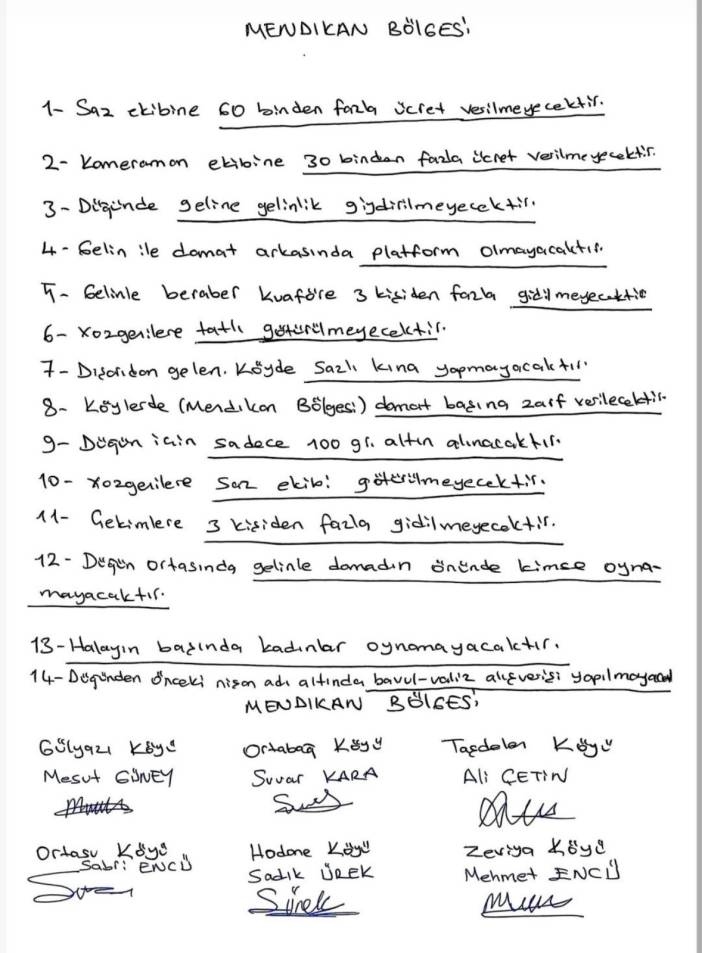 MENDIKAN BÖLGESİ
1- Saz ekibine 60 binden fazla ücret verilmeyecektir.
2- Kameraman ekibine 30 binden fazla ücret verilmeyecektir.
3- Düğünde geline gelinlik giydirilmeyecektir.
4- Gelin ile damat arkasında platform olmayacaktır.
5- Gelinle beraber kuaföre 3 kişiden fazla gidilmeyecektir
6- Xozgenilere tatlı götürülmeyecektir.
7- Dışarıdan gelen. Köyde sazlı kına yapmayacaktır.
8- Köylerde (Mendikan Bölgesi) damat başına zarf verilecektir.
9- Düğün için sadece 100 gr. altın alınacaktır.
10- xozgenilere saz ekibi götürülmeyecektir.
11- Çekimlere 3 kişiden fazla gidilmeyecektir.
12- Düğün ortasında gelinle damadın önünde kimse oyna-
mayacaktır.
13- Halayın başında kadınlar oynamayacaktır.
14- Düğünden önceki nişan adı altında bavul-valiz alışverişi yapılmayacak
MENDIKAN BÖLGESİ
Gülyazı Köyü Ortabağ Köyü Taşdelen Köyü
Mesut GÜNEY Suvar KARA Ali ÇETİN
Ortasu Köyü Hodone Köyü Zeviya Köyü
Sabri ENCÜ Sadık ÜREK Mehmet ENCÜ
Sürek